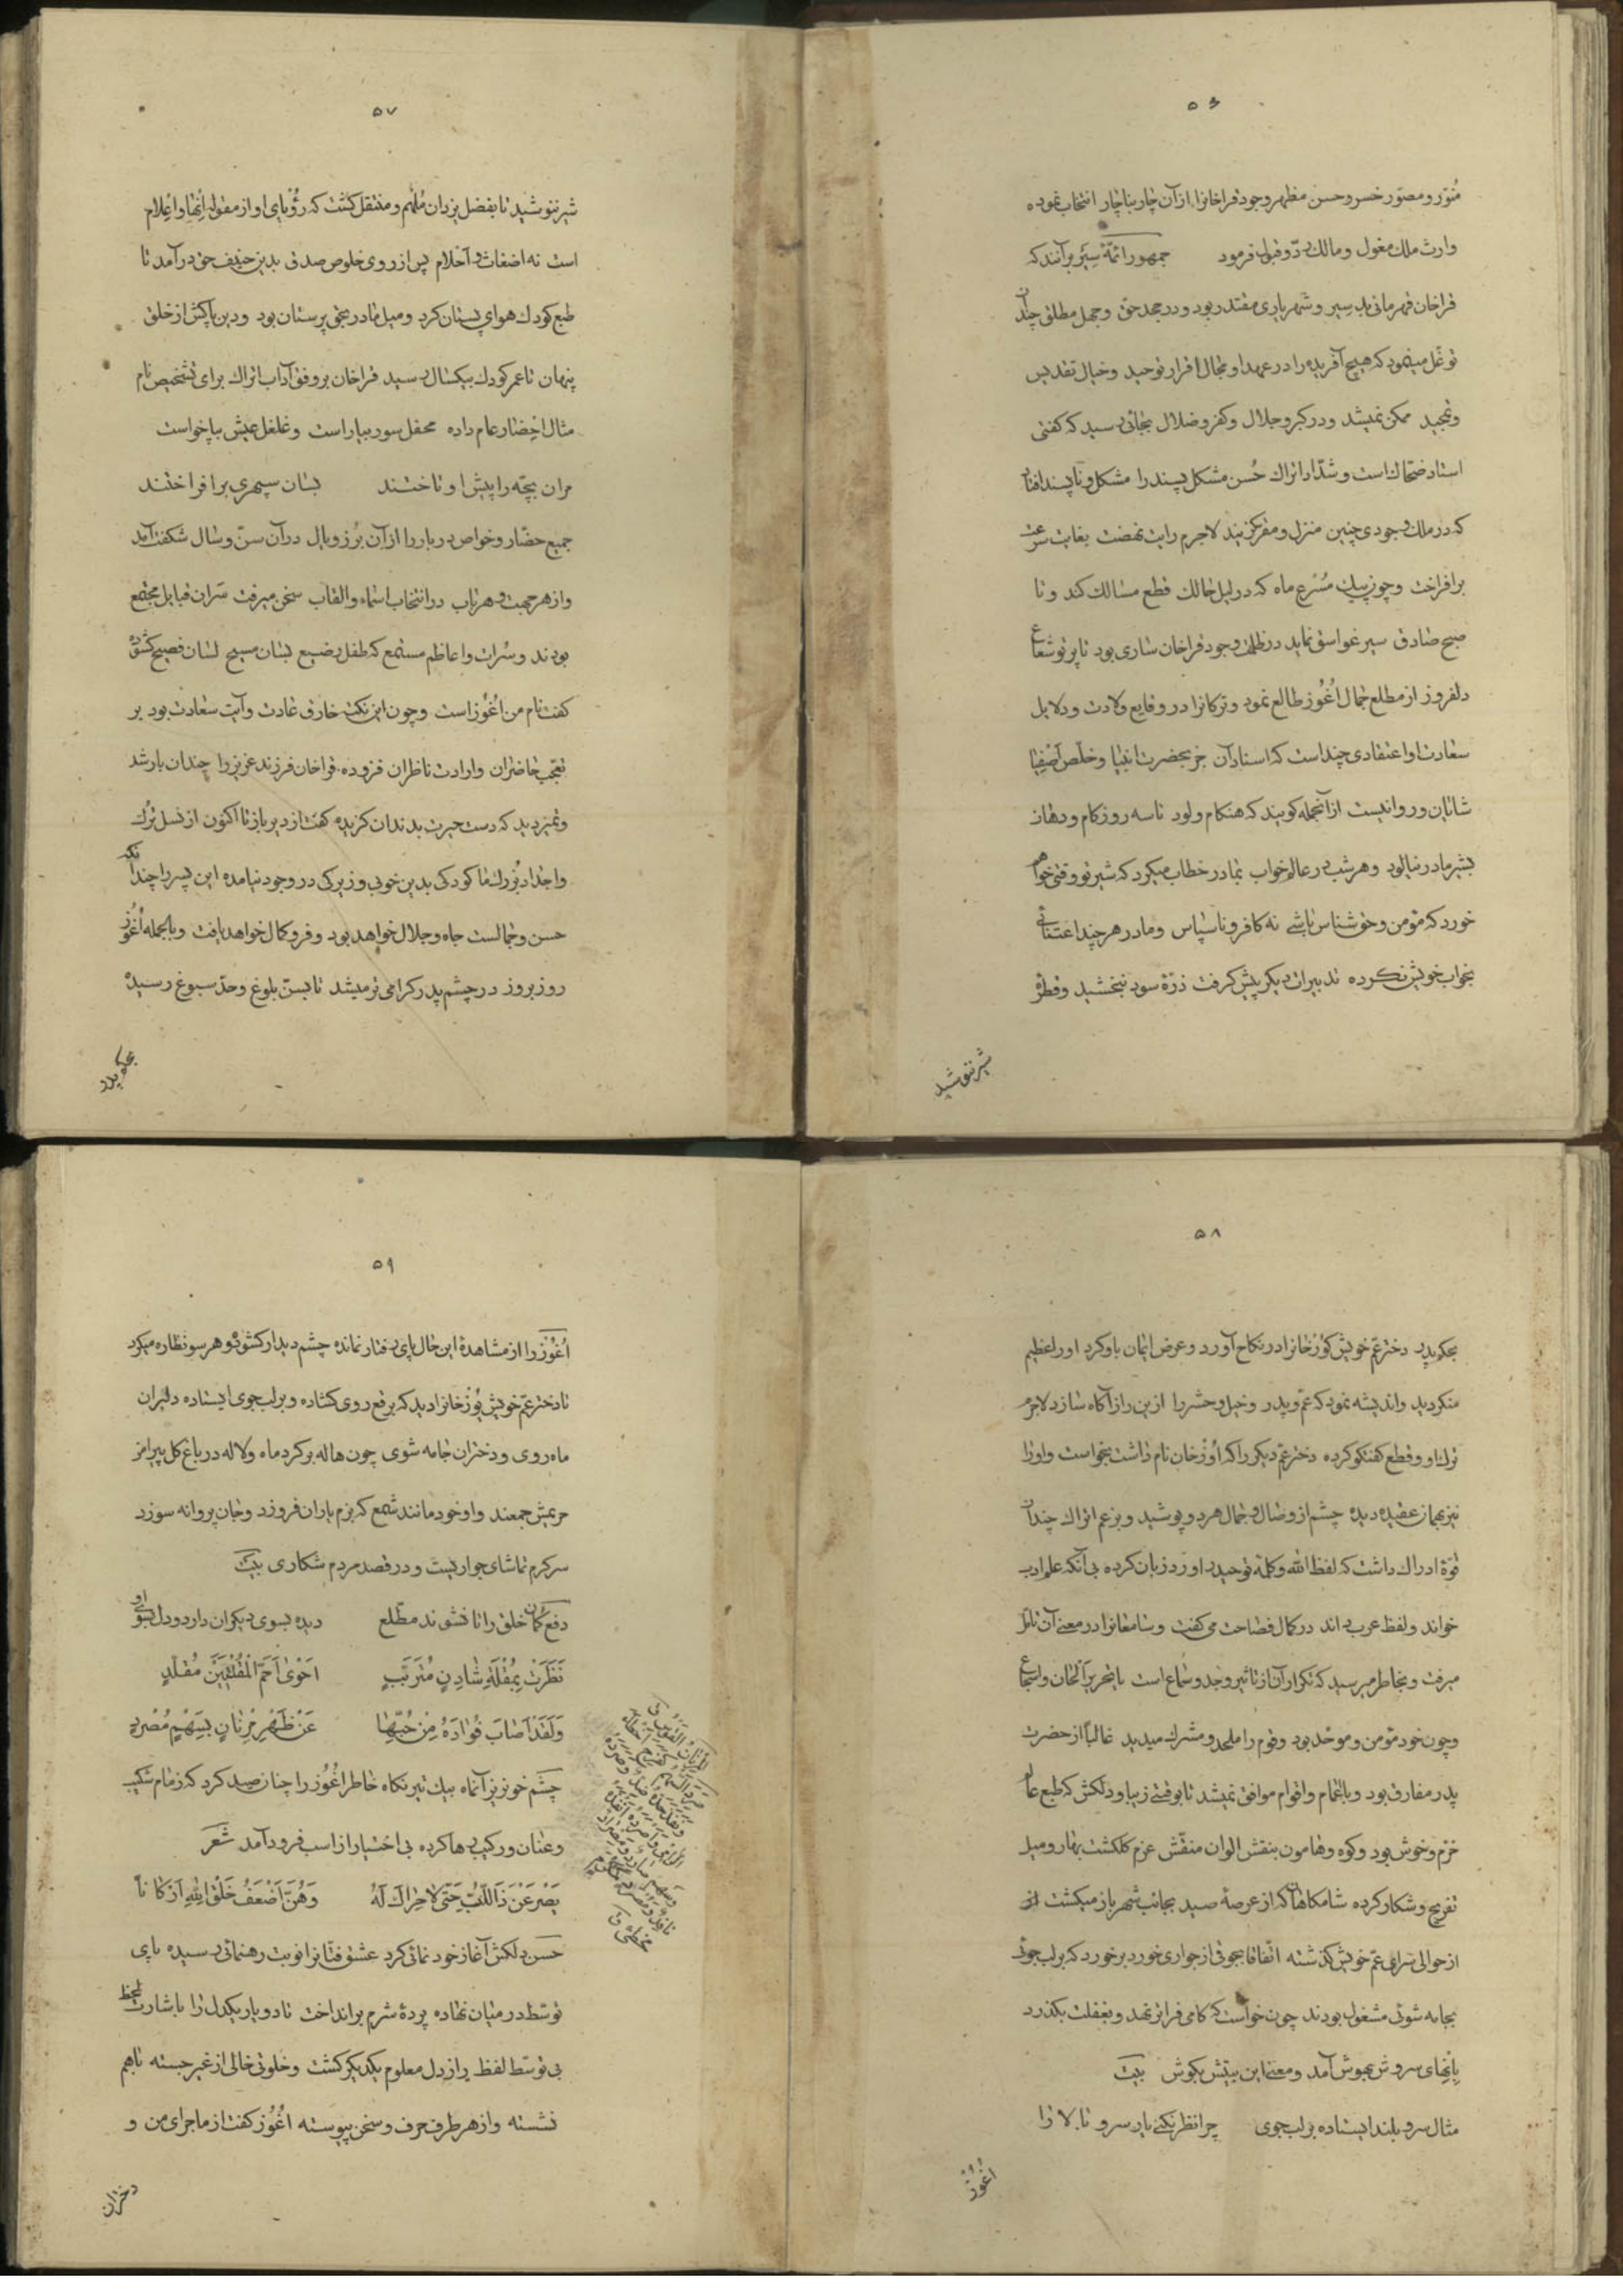 ۵۶
مُنوّر و مصوّر خسرو حسن مظهر وجود قراخانرا از آن چار بناچار انتخاب نموده
وارث ملک مغول و مالک ردّ و قبول فرمود جمهور ائمّهٔ سِیَر برآنند که
قراخان قهرمانی بد سیر و شهریاری مقتدر بود و در جحد حق و جهل مطلق چندان
توغّل مینمود که هیچ آفریده را در عهد او مجال اقرار توحید و خیال تقدیس
و تمجید ممکن نمیشد و در کبر و جلال و کفر و ضلال بجائی رسید که گفتی
استاد ضحّاک است و شدّاد اتراک حُسن مشکل پسند را مشکل و ناپسند افتاد
که در ملک وجودی چنین منزل و مقر گزیند لاجرم رایت نهضت بغایت سرعت
برافراخت و چون پیک مُسْرع ماه که در لیل حالک قطع مسالک کند و تا
صبح صادق سیر غواسق نماید در ظلمت وجود قراخان ساری بود تا پرتو شعاع
دلفروز از مطلع جمال اُغُوز طالع نمود و ترکانرا در وقایع ولادت و دلایل
سعادت او اعتقادی چند است که اسناد آن جز بحضرت انبیا و خلّص اَصْفِیا
شایان و روا نیست از آنجمله گویند که هنگام ولود تا سه روز کام و دهان
بشیر مادر نیالود و هر شب در عالم خواب بمادر خطاب میکرد که شیر تو وقتی خواهم
خورد که مؤمن و حق شناس باشی نه کافر و ناسپاس و مادر هر چند اعتنائی
بخواب خویش نکرده تدبیرات دیگر پیش گرفت ذرّهٔ سود نبخشید و قطرهٔ
شیر ننوشید
۵۷
شیر ننوشید تا بفضل یزدان مُلْهم و منتقل گشت که رؤیای او از مقوله اِنْهٰا و اعْلام
است نه اضغاث و احْلام پس از روی خلوص صدق بدین حنیف حق درآمد تا
طبع کودک هوای پستان کرد و میل مادر بحق پرستان بود و دین پاکش از خلق
پنهان تا عمر کودک بیکسال رسید قراخان بر وفق آداب اتراک برای تشخیص نام
مثال احْضار عام داده محفل سور بیاراست و غلغل عیش بپا خواست
مران بچّه را پیش او تاختند بسان سپهری برافراختند
جمیع حضّار و خواص دربار را از آن بُرز و یال در آن سنّ و سال شگفت آمد
و از هر جهت و هر باب در انتخاب اسماء و القاب سخن میرفت سَران قبایل مجتمع
بودند و سُرات و اعاظم مستمع که طفل رضیع بسان مسیح لسان فصیح گشوده
گفت نام من اُغُوز است و چون این نکته خارق عادت و آیت سعادت بود بر
تعجّب حاضران و ارادت ناظران فزوده قراخان فرزند عزیز را چندان بارشد
و تمیز دید که دست حیرت بدندان گزیده گفت از دیر باز تا اکنون از نسل تُرْک
و اجداد بُزرك ما کودکی بدین خوبی و زیرکی در وجود نیامده این پسر را چندانکه
حسن و جمالست جاه و جلال خواهد بود و فر و کمال خواهد یافت و بالجمله اُغُوز
روز بروز در چشم پدر گرامی تر میشد تا بسنّ بلوغ و حدّ سبوغ رسیده
بحکم پدر
۵۸
بحکم پدر دختر عمّ خویش کُوزْخانرا در نکاح آورد و عرض ایمان باو کرد او را عظیم
منکر دید و اندیشه نمود که عمّ و پدر و خیل و حشر را ازین راز آگاه سازد لاجرم
ترک او و قطع گفتگو کرده دختر عمّ دیگر را که اُوزْخان نام داشت بخواست و او را
نیز بهمان عقیده دیده چشم از وصال و جمال هر دو پوشید و بزعم اتراک چندان
قوّة ادراک داشت که لفظ الله و کلمهٔ توحید را ورد زبان کرده بی آنکه علم ادب
خواند و لفظ عرب داند در کمال فصاحت می گفت و سامعانرا در معنی آن تامّل
میرفت و بخاطر میرسید که تکرار آن از تاثیر وجد و سَماع است یا تحریر اَلحان و اسجاع
و چون خود مؤمن و موحّد بود و قوم را ملحد و مشرك میدید غالباً از حضرت
پدر مفارق بود و با اعْمام و اقوام موافق نمیشد تا بوقتی زیبا و دلکش که طبع عالم
خرّم و خوش بود و کوه و هامون بنقش الوان منقّش عزم گلگشت بهار و میل
تفریح و شکار کرده شامگاهان که از عرصهٔ صید بجانب شهر باز میگشت
از حوالی سرای عمّ خویش گذشته اتّفاقا بجوقی از جواری خورد برخورد که بر لب جوئی
بجامه شوئی مشغول بودند چون خواست که کامی فراتر نهد و بغفلت بگذرد
بِانْهای سروش بهوش آمد و معنی این بیتش بگوش بیت
مثال سرو بلند ایستاده بر لب جوی چرا نظر نکنی یار سرو بالا را
اُغُوز
۵۹
اُغُوز را از مشاهدهٔ این حال پای رفتار نمانده چشم دیدار گشود و هر سو نظاره میکرد
تا دختر عمّ خویش یُوزْخانرا دید که برقع روی گشاده و بر لب جوی ایستاده دلبران
ماه روی و دختران جامه شوی چون هاله بر گرد ماه و لاله در باغ گل پیرامن
حریمش جمعند و او خود مانند شمع که بزم یاران فروزد و جان پروانه سوزد
سرگرم تماشای جواریست و در قصد مردم شکاری بیت
دفع گمان خلق را تا نشوند مطّلع دیده بسوی دیگران دارد و دل بسوی او
نَظَرَتْ بِمُقْلَةِ شٰادِنٍ مُتَرَبِّبٍ احْوٰی اَحَمِّ الْمُقْلَتَیْنِ مُقَلَّدٍ
وَلَقَدْ اَصٰابَ فُؤٰادَهُ مِنْ حُبِّهٰا عَنْ ظَهْرِ مِرْنٰانٍ بِسَهْمٍ مُصْرِدٍ
چشم خونریز آنماه بیک تیر نگاه خاطر اُغُوز را چنان صید کرد که زمام شکیب
و عنان و رکیب رها کرده بی اختیار از اسب فرود آمد شعر
یَصْرَعْنَ ذَا اللُّبِّ حَتّی لاحِرٰاكَ لَهُ وَهُنَّ اَضْعَفُ خَلْقِ اللهِ اَرْکٰاناً
حسن دلکش آغاز خود نمائی کرد عشق فتّانرا نوبت رهنمائی رسیده پای
توسّط در میان نهاده پردهٔ شرم برانداخت تا دو یار یکدل را باشارت لحظ
بی توسّط لفظ راز دل معلوم یکدیگر گشت و خلوتی خالی از غیر جسته باهم
نشسته و از هر طرف حرف و سخن پیوسته اُغُوز گفت از ماجرای من و
دختران